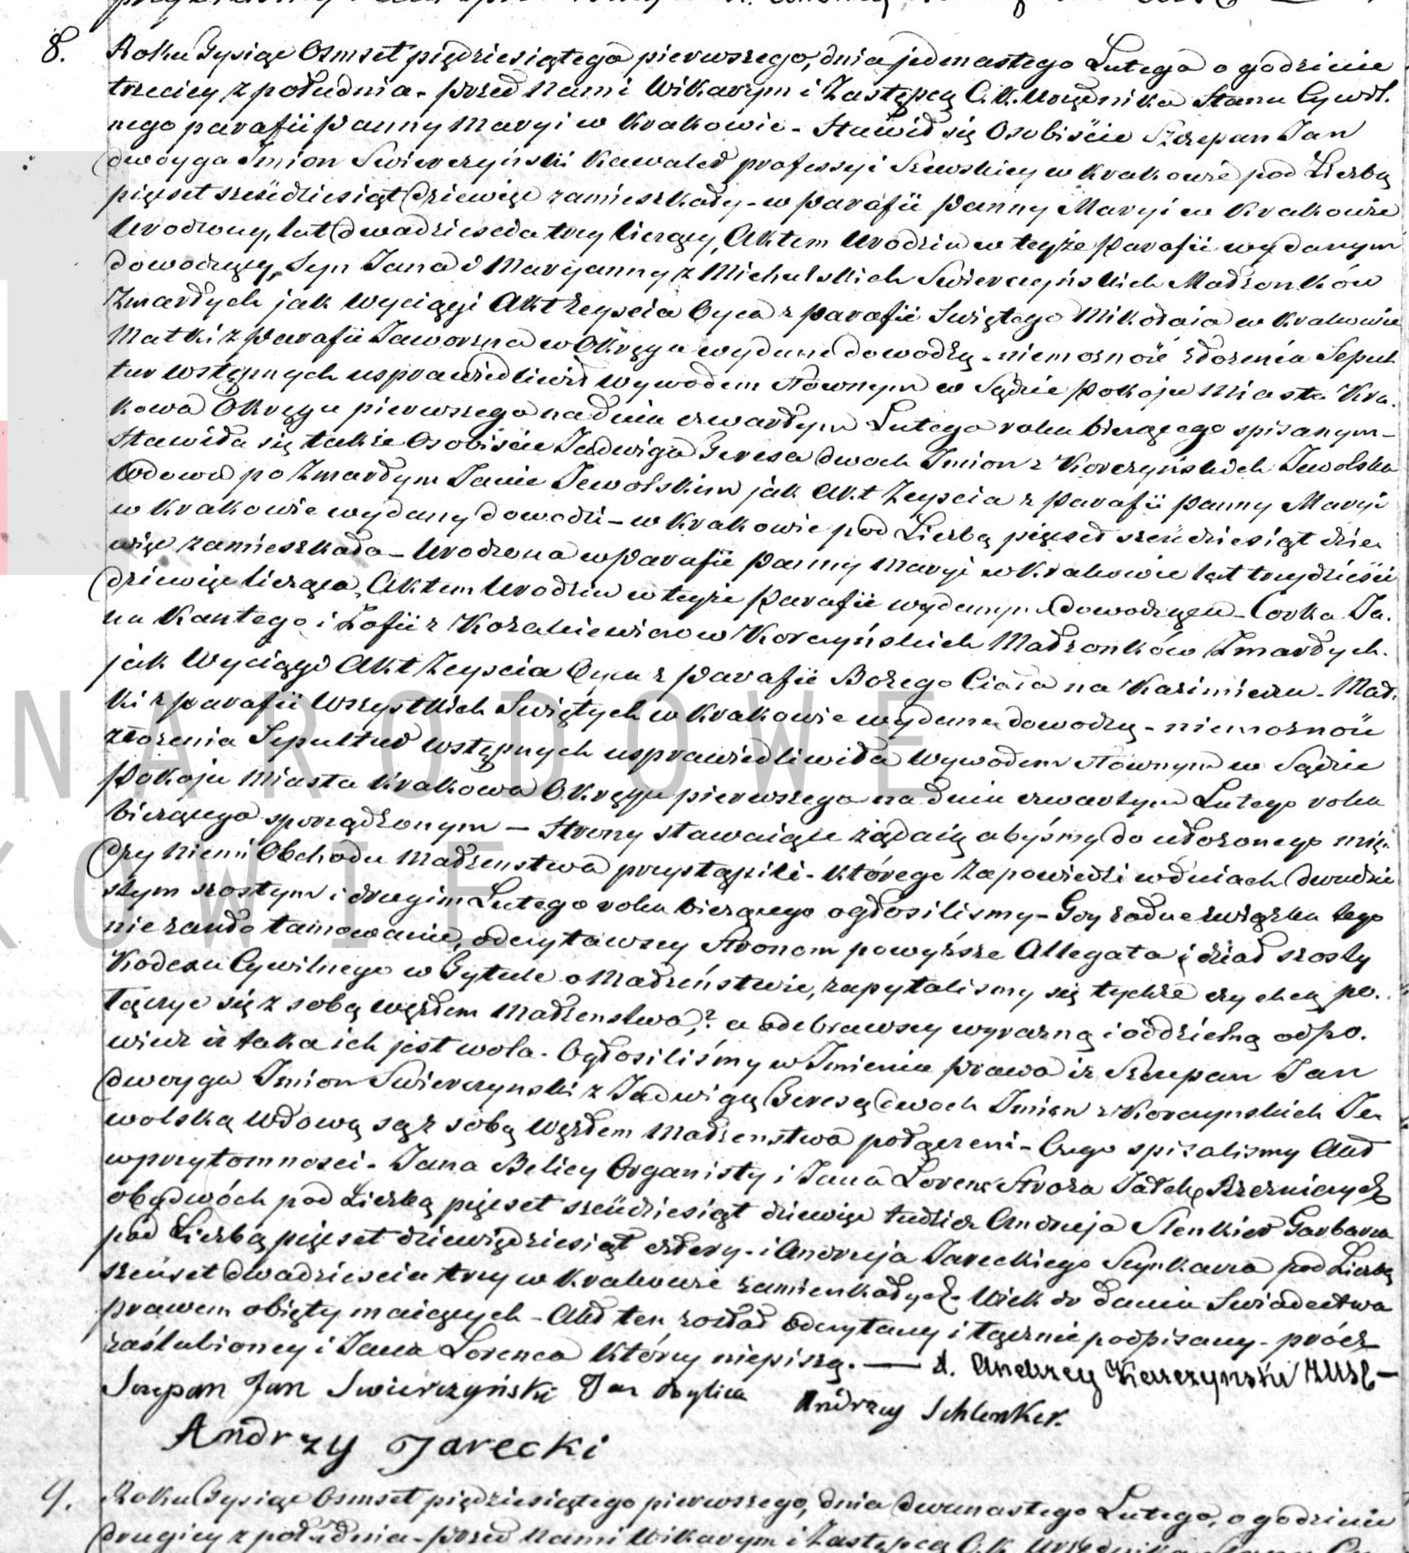 8. Roku Tysiąc Osmset pięćdziesiątego pierwszego, dnia jedenastego Lutego o godzinie
trzeciey z południa. przed Nami Wikarym i Zastępcą C. K. Urzędnika Stanu Cywil.
nego parafii Panny Maryi w Krakowie - Stawił się Osobiście Szczepan Jan
dwoyga Imion Swierczyński Kawaler professyi Szewskiey w Krakowie pod Liczbą
pięset sześćdziesiąt dziewięć zamieszkały - w Parafii Panny Maryi w Krakowie
Urodzony, lat dwadzieścia trzy liczący, Aktem Urodzin w teyże Parafii wydanym
dowodzący, Syn Jana i Maryanny z Michulskich Swierczyńskich Małżonków
Zmarłych jak Wyciągi Akt Zeyscia Oyca z Parafii Swiętego Mikołaia w Krakowie
Matki z Parafii Jaworzna w Okręgu wydane dowodzą - niemożność złożenia Sepul
tur wstępnych usprawiedliwił wywodem słownym w Sądzie Pokoju Miasta Kra.
kowa Okręgu pierwszego na dniu czwartym Lutego roku bieżącego spisanym -
Stawiła się także Osobiście Jadwiga Teresa dwoch Imion z Korczyńskich Jewolska
Wdowa po Zmarłym Janie Jewolskim jak Akt Zeyscia z Parafii Panny Maryi
w Krakowie wydany dowodzi - w Krakowie pod Liczbą pięset sześćdziesiąt dzie
więć zamieszkała - Urodzona w Parafii Panny Maryi w Krakowie lat trzydzieści
dziewięć licząca, Aktem Urodzin w teyże Parafii wydanym dowodząca - Corka Ja.
na Kantego i Zofii z Kozakiewiczow Korczyńskich Małżonków Zmarłych.
jak Wyciągi Akt Zeyscia Oyca z Parafii Bożego Ciała na Kazimierzu - Mat.
ki z parafii Wszystkich Swiętych w Krakowie wydane dowodzą - niemożność
złożenia Sepultur wstępnych usprawiedliwiła Wywodem słownym w Sądzie
Pokoju Miasta Krakowa Okręgu pierwszego na dniu czwartym Lutego roku
bieżącego sporządzonym - Strony stawaiące żądaią abyśmy do ułożonego mię.
dzy Niemi Obchodu Małżenstwa przystąpili - którego Zapowiedzi w dniach dwudzie
stym szostym i drugim Lutego roku bieżącego ogłosilismy - Gdy żadne związku tego
nie zaszło tamowanie, odczytawszy Stronom powyższe Allegata i dział szosty
Kodexu Cywilnego w Tytule o Małżeństwie, zapytalismy się tychże czy chcą po.
łączyć się z sobą węzłem Małżenstwa,? a odebrawszy wyrazną i oddzielną odpo.
wiedz iż taka ich jest wola - Ogłosiliśmy w Imieniu Prawa iż Szczepan Jan
dwoyga Imion Swierczynski z Jadwigą Teresą dwoch Imion z Korczynskich Je
wolską Wdową są z sobą węzłem Małżenstwa połączeni - Czego spisalismy Akt
w przytomnosci - Jana Belicy Organisty i Jana Lorenc Stroża Jatek Rzezniczych
obydwóch pod Liczbą pięset sześćdziesiąt dziewięć tudzież Andrzeja Slenkier Garbarza
pod Liczbą pięset dziewięćdziesiąt cztery - i Andrzeja Jareckiego Szynkarza pod Liczbą
szeset dwadzieścia trzy w Krakowie zamieszkałych - Wiek do dania Swiadectwa
prawem objęty maiących - Akt ten został odczytany i łącznie podpisany - prócz
zaślubioney i Jana Lorenca którzy niepiszą. — X. Andrzey Karczynski ZUSC -
Szcepan Jan Swierczyński Jan Bylica Andrzey Schlenker.
Andrzy Jarecki
9. Roku Tysiąc Osmset pięćdziesiątego pierwszego, dnia dwunastego Lutego, o godzinie
drugiey z południa - przed Nami Wikarym i Zastępcą C. K.
NARODOWE
KOWIE